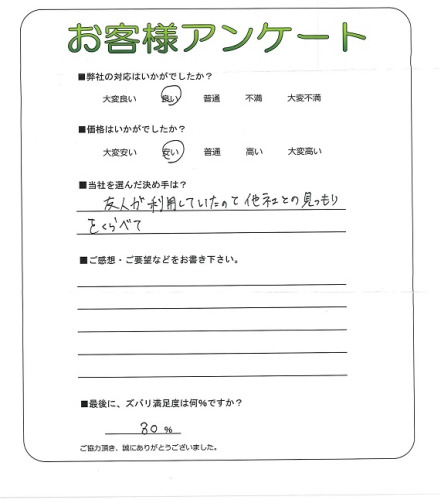 お客様アンケート
■弊社の対応はいかがでしたか？
大変良い 良い 普通 不満 大変不満
■価格はいかがでしたか？
大変安い 安い 普通 高い 大変高い
■当社を選んだ決め手は？
友人が利用していたのと他社との見つもり
をくらべて
■ご感想・ご要望などをお書き下さい。
■最後に、ズバリ満足度は何％ですか？
80 %
ご協力頂き、誠にありがとうございました。